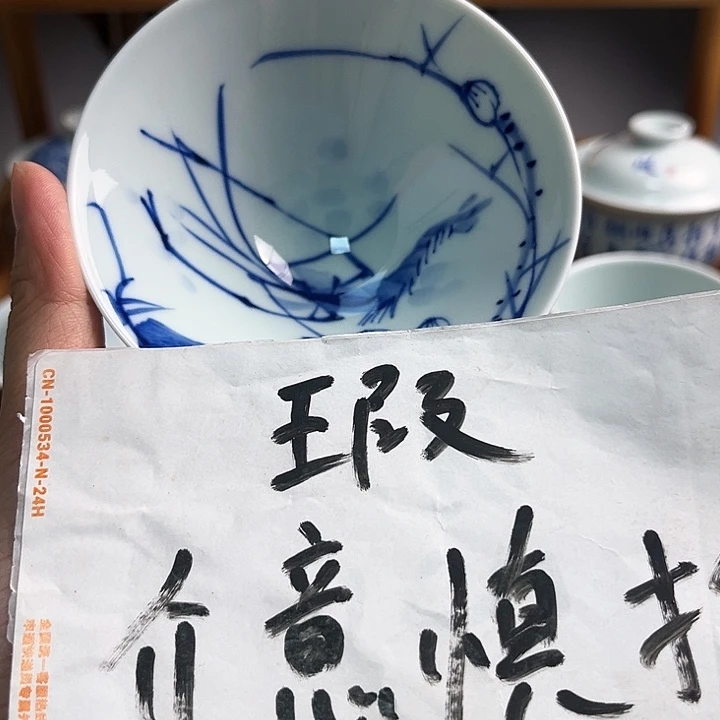 瑕
介意慎拍
CN-1000534-N-24H